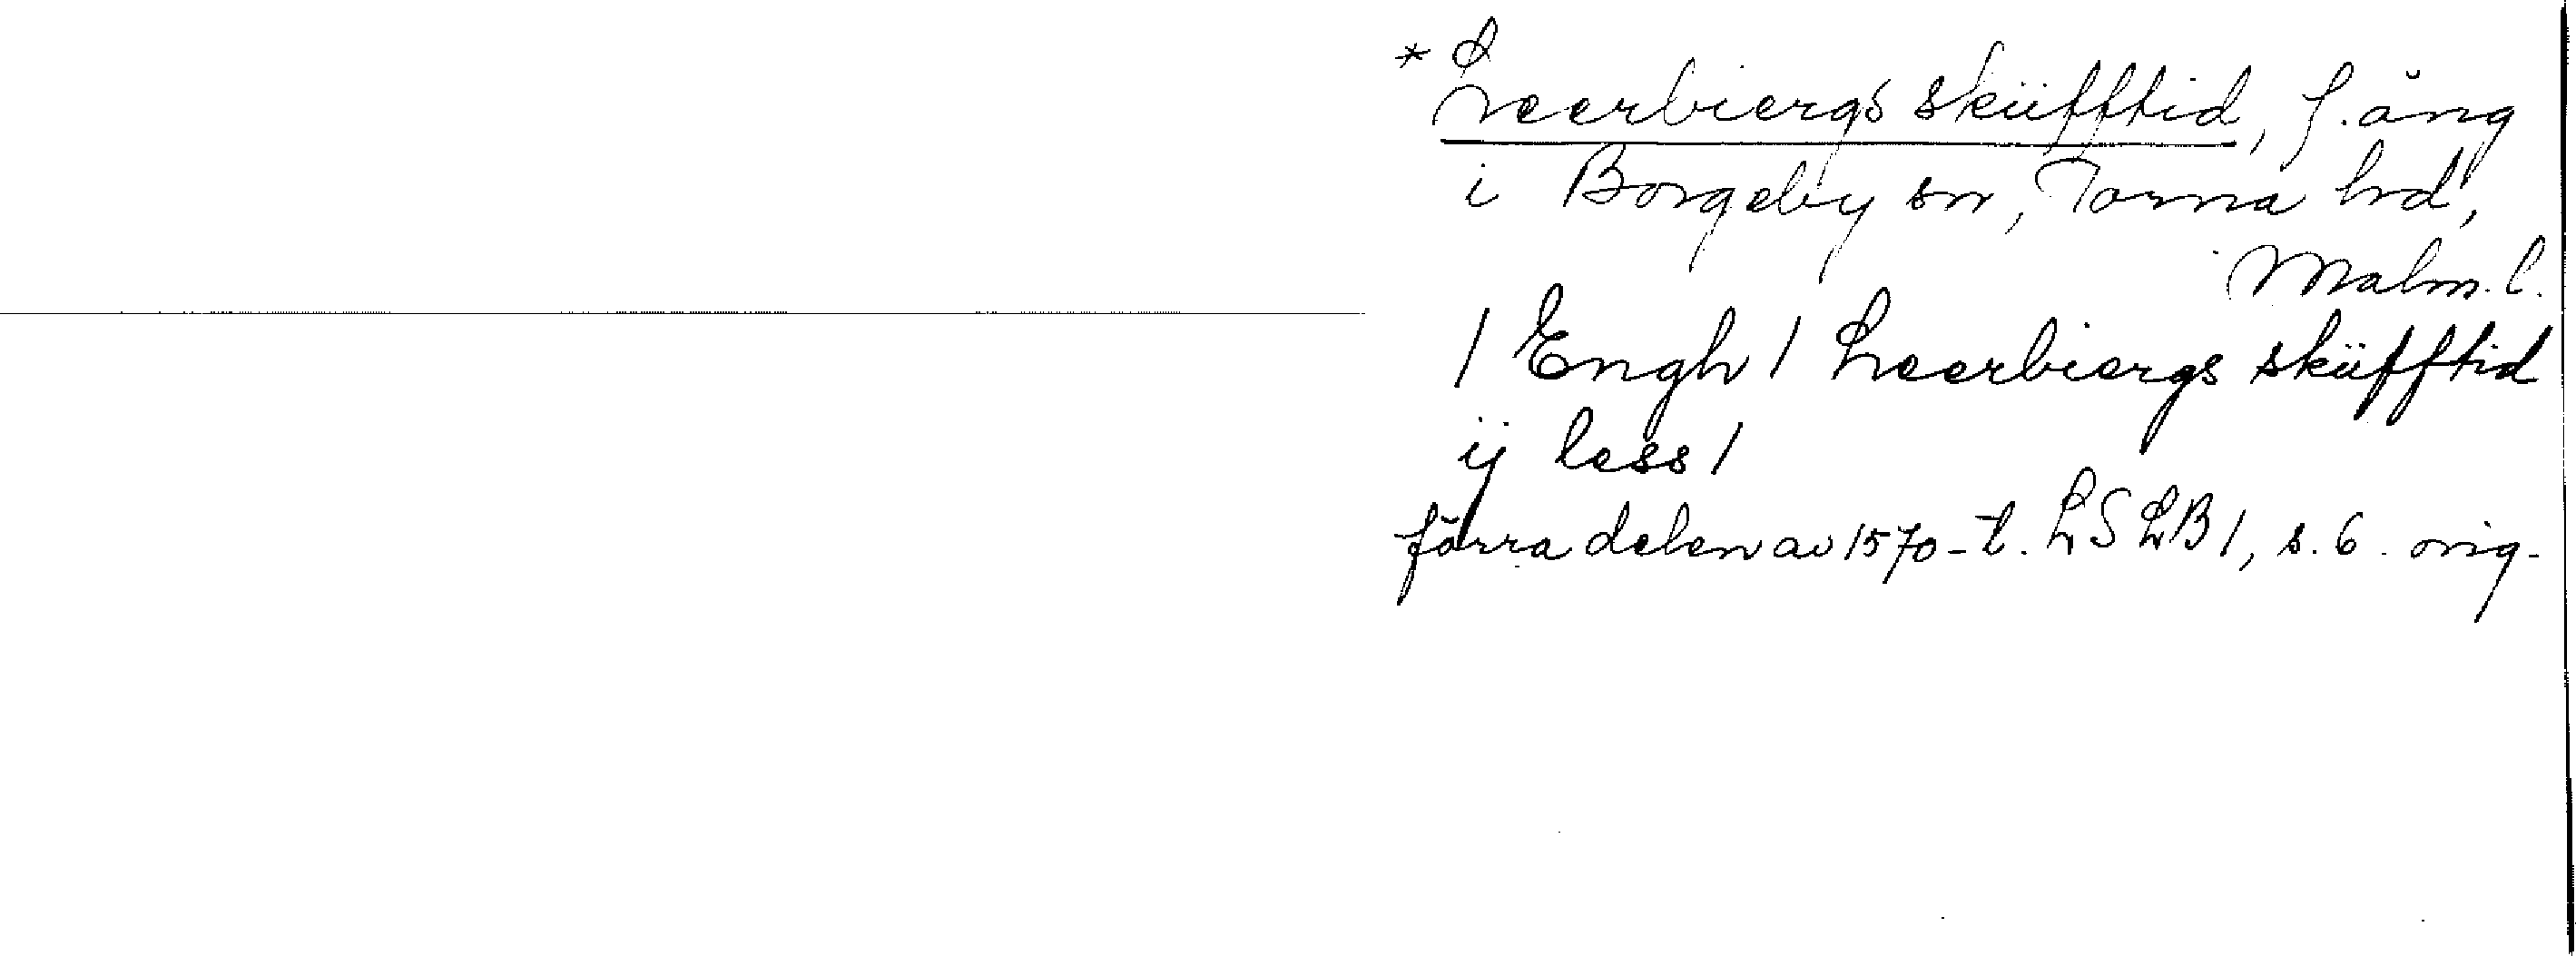 * Leerbiergs skü̈fftid, f. äng
i Borgeby sn, Torna hd,
Malm. l.
/ Engh / Leerbiergs sküfftid
ij less /
förra delen av 1570-t. LSLB 1, s. 6. orig.